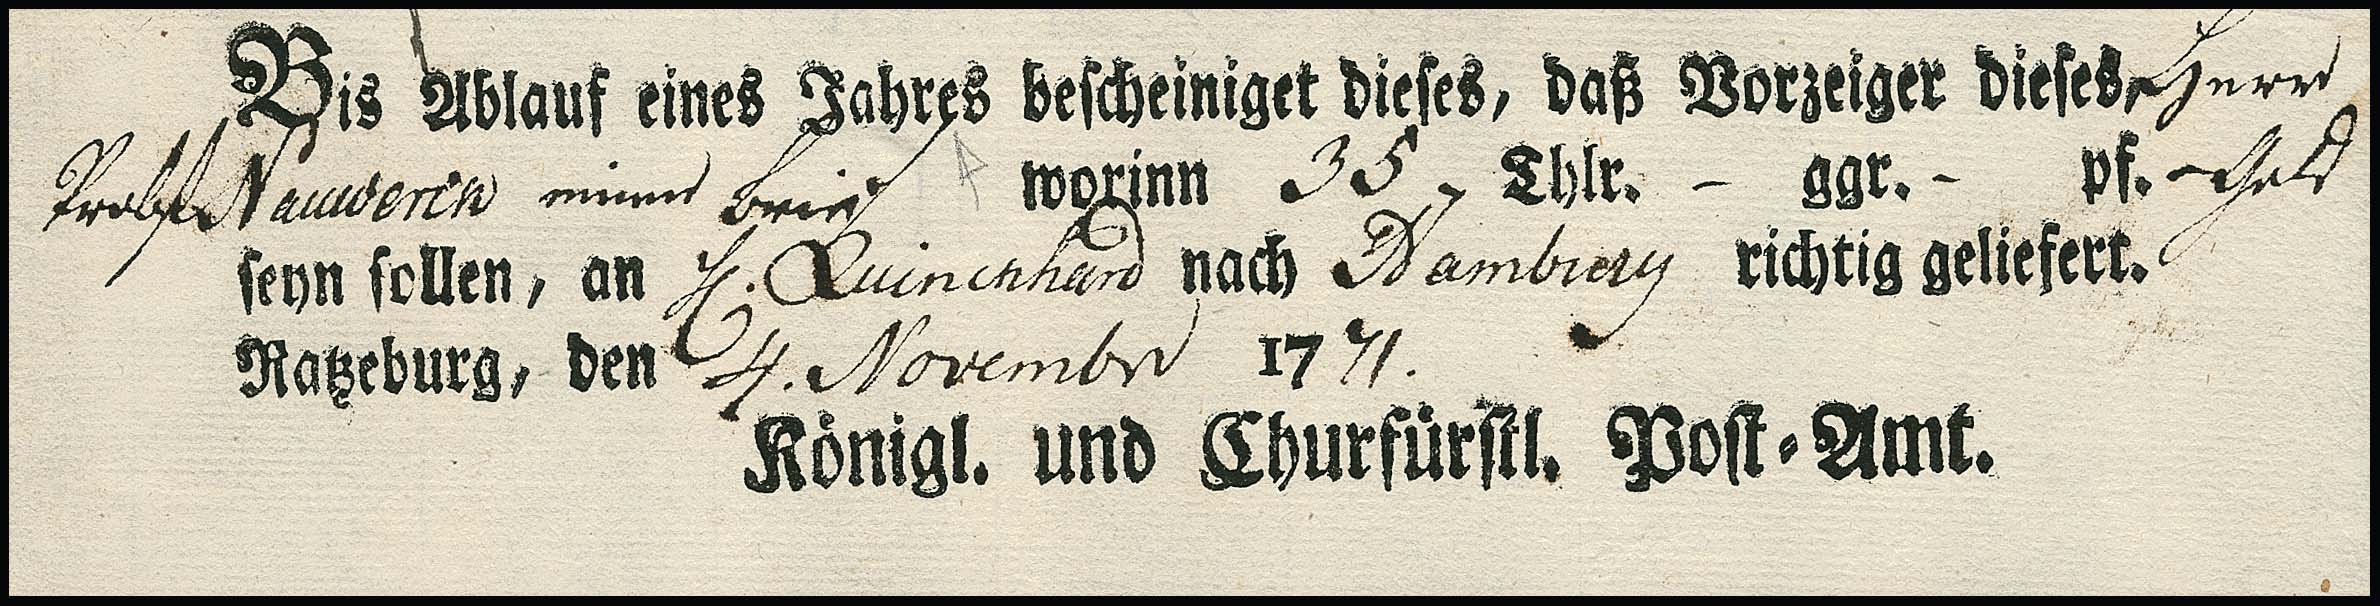 Bis Ablauf eines Jahres bescheiniget dieses, daß Vorzeiger dieses, Herr
Probst Nauwerck einen Brief worinn 35 Thlr. - ggr. - pf. Gold
seyn sollen, an H. Quinckhard nach Hamburg richtig geliefert.
Ratzeburg, den 4. Novembr 1771.
Königl. und Churfürstl. Post-Amt.